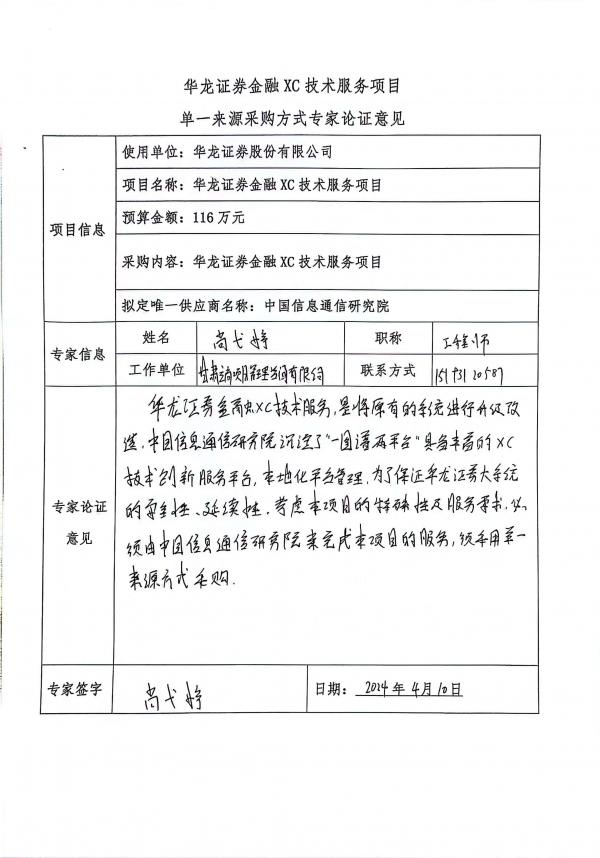 华龙证券金融XC技术服务项目
单一来源采购方式专家论证意见
项目信息
使用单位：华龙证券股份有限公司
项目名称：华龙证券金融XC技术服务项目
预算金额：116万元
采购内容：华龙证券金融XC技术服务项目
拟定唯一供应商名称：中国信息通信研究院
专家信息
姓名 尚弋婷 职称 工程师
工作单位 项目管理咨询有限公司 联系方式
专家论证
意见
华龙证券金融XC技术服务，是将原有的系统进行升级改
造，中国信息通信研究院沉淀了“一图谱两平台”具备丰富的XC
技术创新服务平台，本地化平台管理，为了保证华龙证券大系统
的安全性、延续性，考虑本项目的特殊性及服务要求，必
须由中国信息通信研究院来完成本项目的服务，须采用单一
来源方式采购.
专家签字 尚弋婷 日期：2024年4月10日